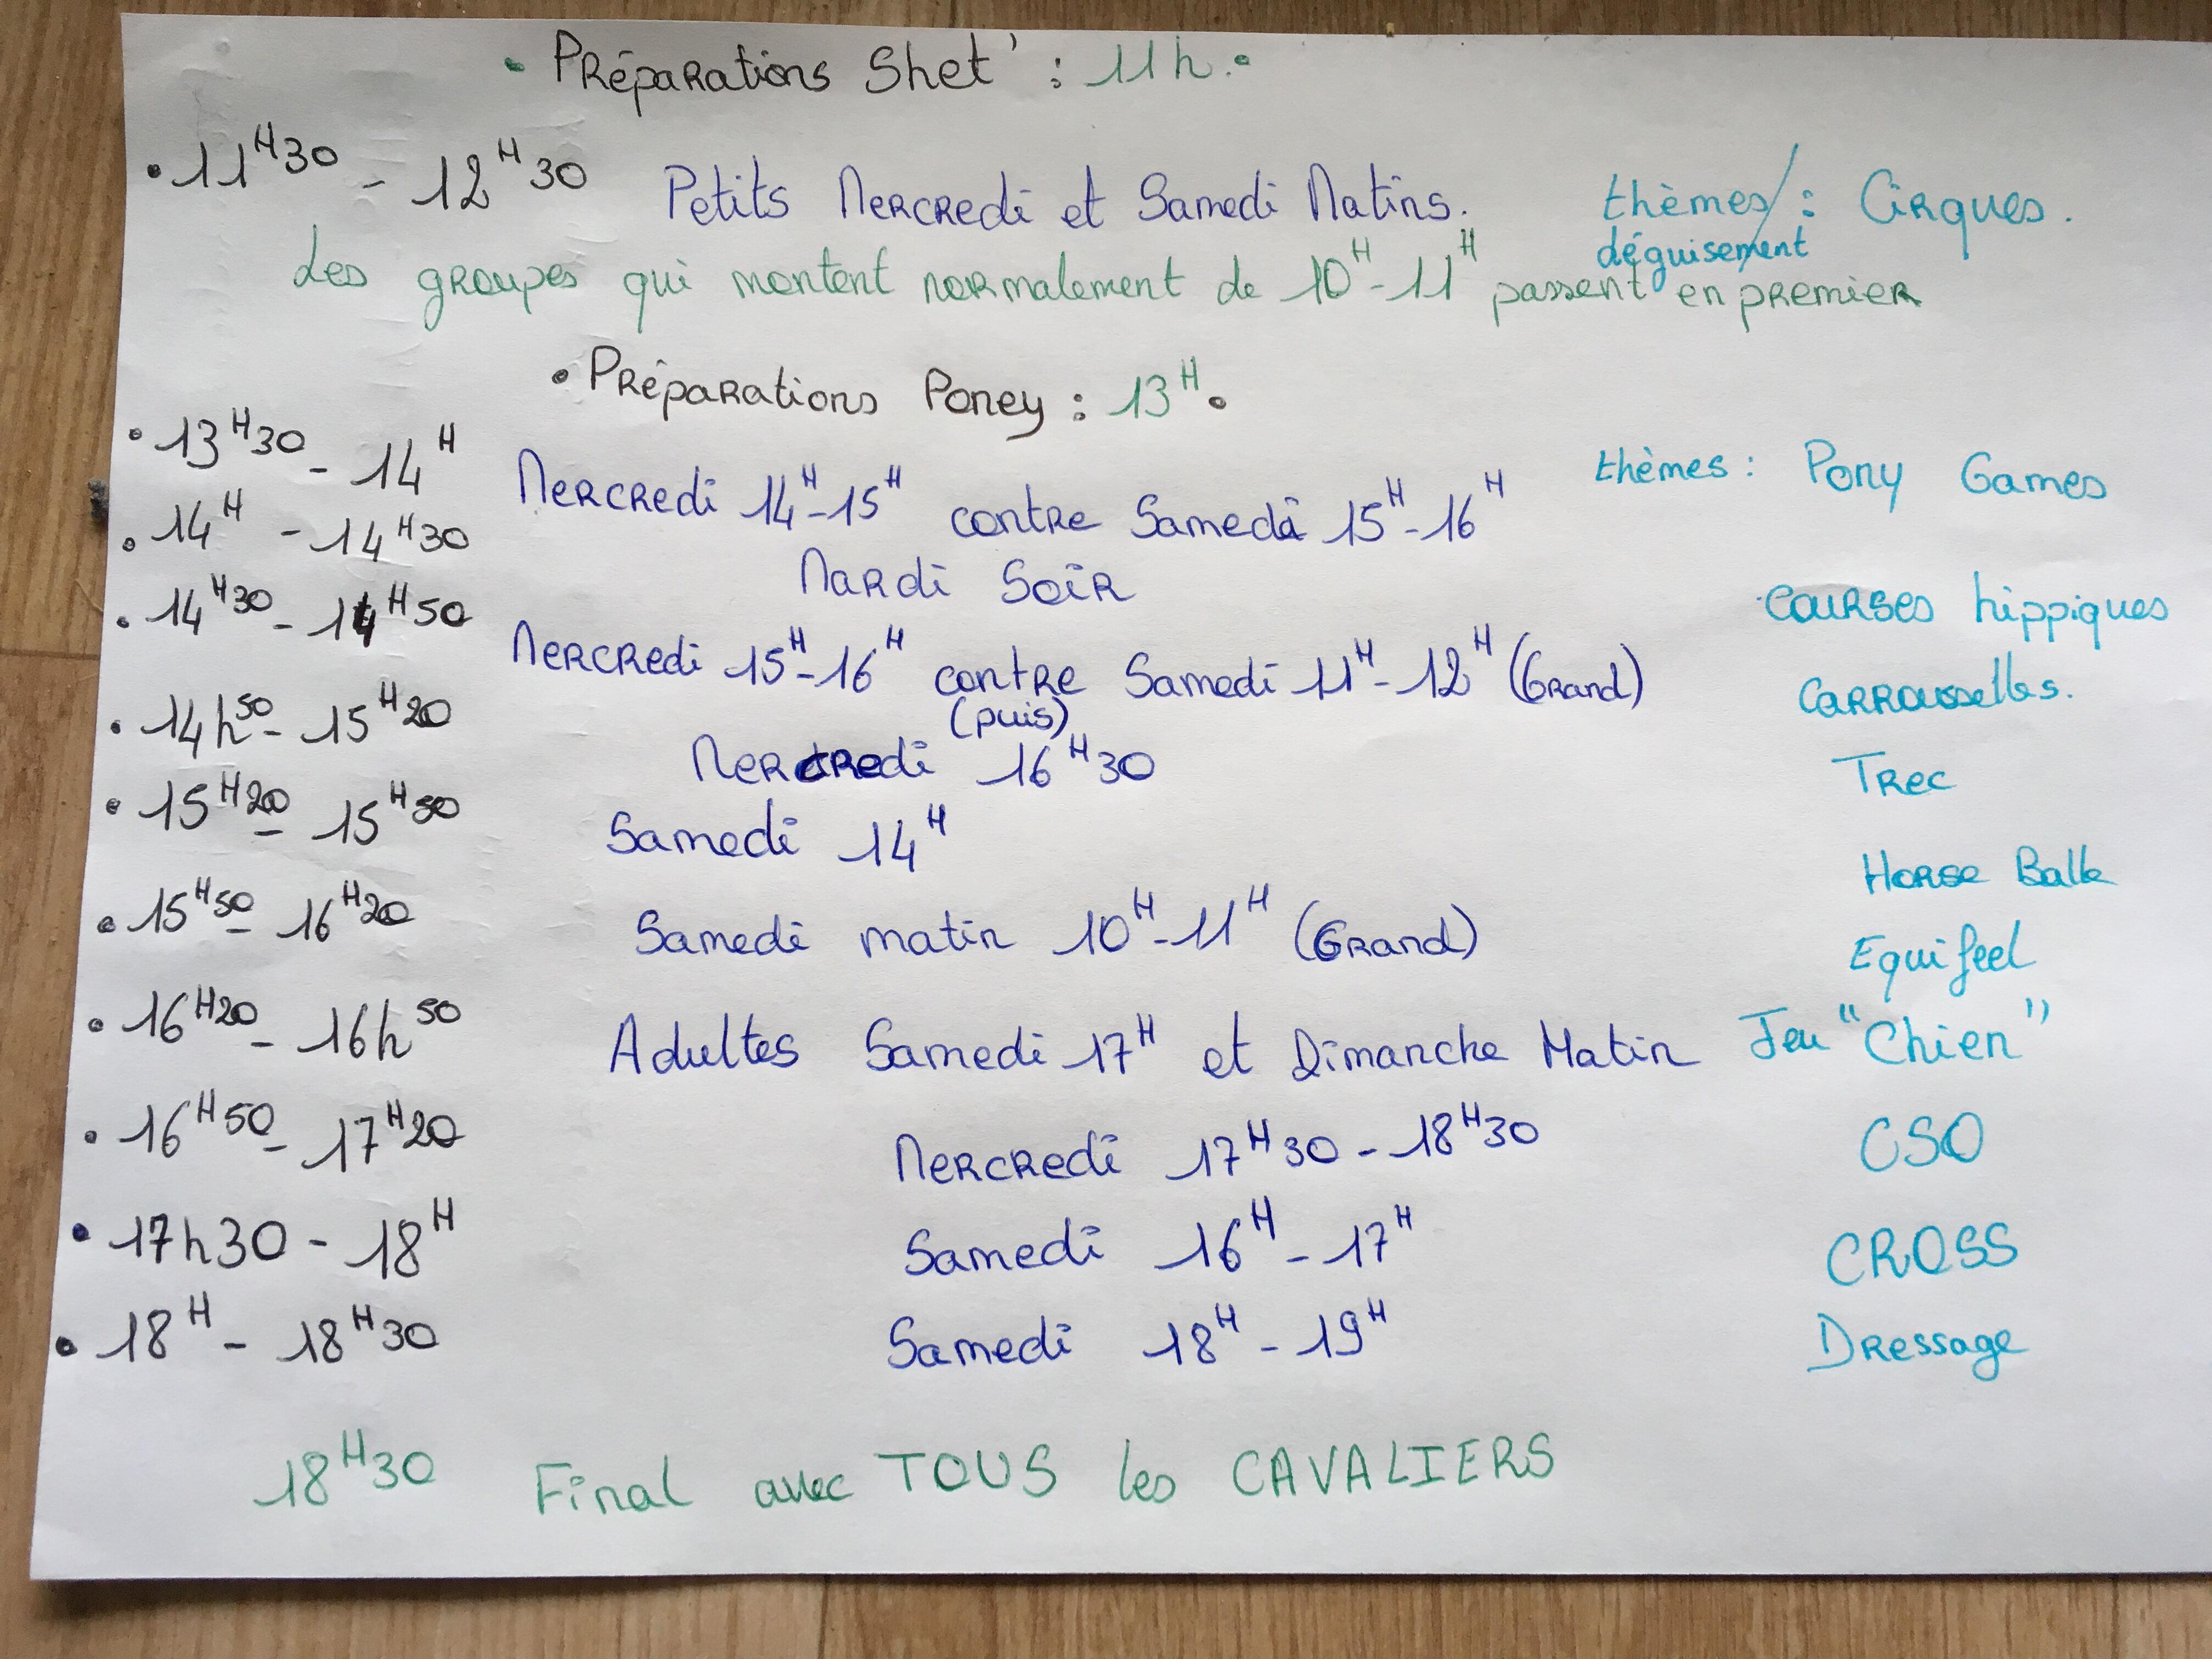 • Préparations Shet' : 11h •
• 11H30 - 12H30 Petits Mercredi et Samedi Matins. thèmes/ : Cirques.
déguisement
Les groupes qui montent normalement de 10H-11H passent en premier
• Préparations Poney : 13H •
• 13H30 - 14H Mercredi 14H-15H contre Samedi 15H-16H thèmes : Pony Games
• 14H - 14H30 Mardi Soir courses hippiques
• 14H30 - 14H50 Mercredi 15H-16H contre Samedi 11H-12H (Grand) Carrousselles.
(puis)
• 14h50 - 15H20 Mercredi 16H30 Trec
• 15H20 - 15H50 Samedi 14H Horse Balle
• 15H50 - 16H20 Samedi matin 10H-11H (Grand) Equifeel
• 16H20 - 16h50 Adultes Samedi 17H et Dimanche Matin Jeu "Chien"
• 16H50 - 17H20 Mercredi 17H30 - 18H30 CSO
• 17h30 - 18H Samedi 16H - 17H CROSS
• 18H - 18H30 Samedi 18H - 19H Dressage
18H30 Final avec TOUS les CAVALIERS